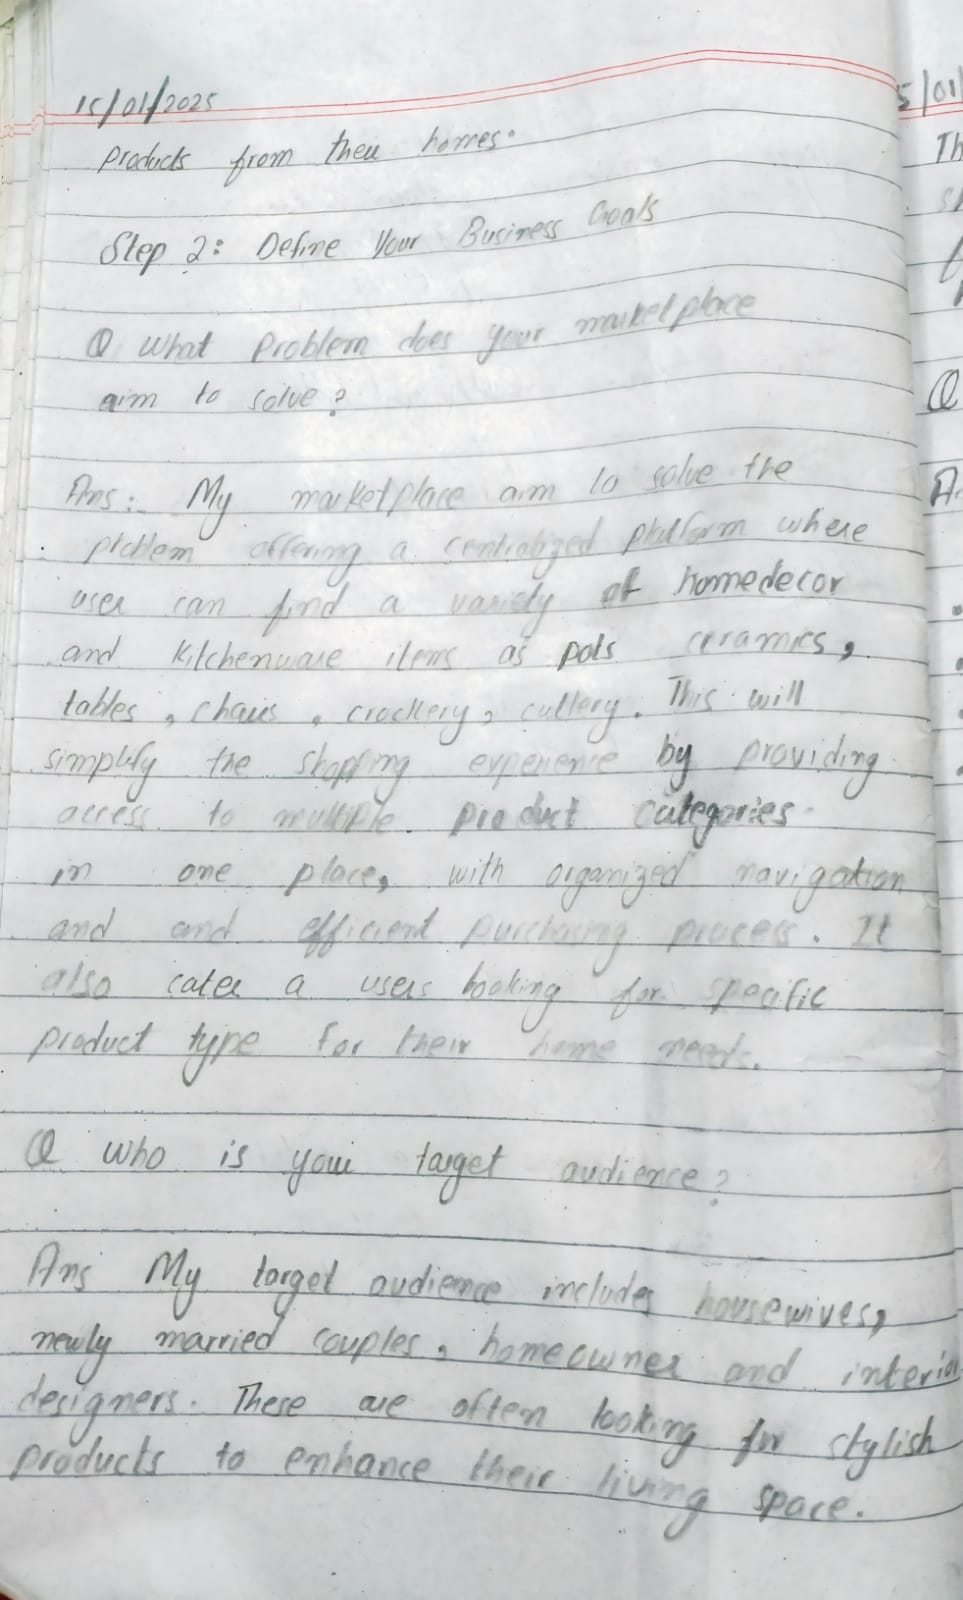 15/01/2025
products from their homes.
Step 2: Define Your Business Goals
Q What Problem does your marketplace
aim to solve?
Ans: My marketplace aim to solve the
problem offering a centralized platform where
user can find a variety of homedecor
and kitchenware items as pots ceramics,
tables, chairs, crockery, cutlery. This will
simplify the shopping experience by providing
access to multiple product categories
in one place, with organized navigation
and and efficient purchasing process. It
also cater a users looking for specific
product type for their home needs.
Q Who is your target audience?
Ans My target audience includes housewives,
newly married couples, homeowner and interior
designers. These are often looking for stylish
products to enhance their living space.
5/01/
Th
Q